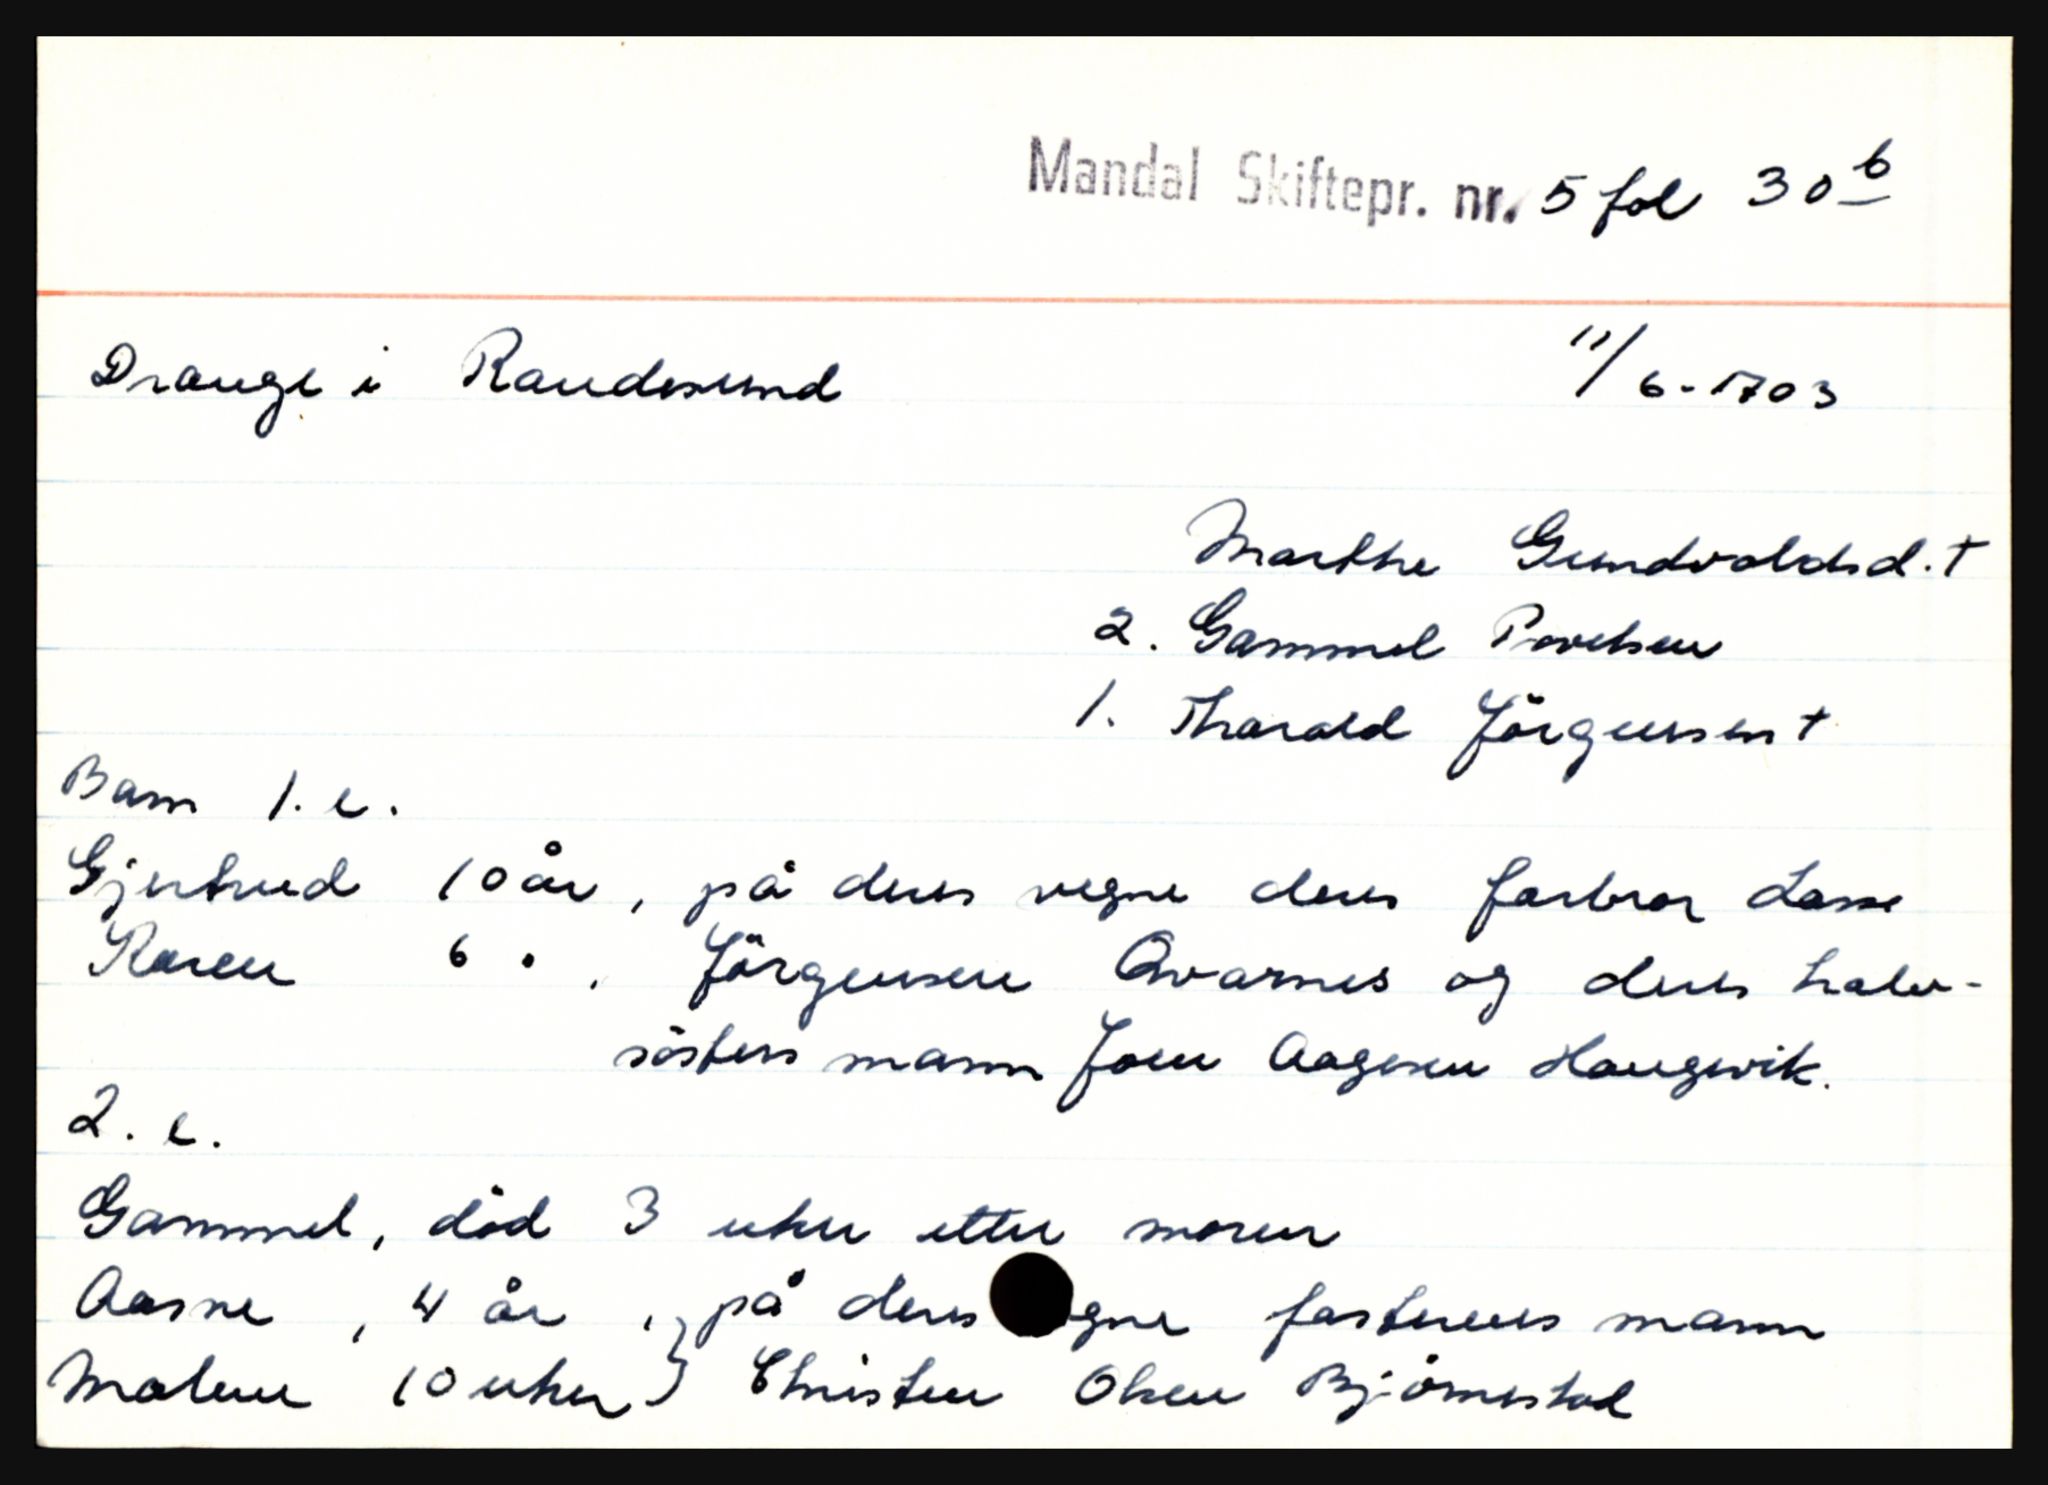 Mandal Skiftepr. nr. 5 fol 30b
Drange i Randesund 11/6-1703
Marthe Gundvaldsd. +
2. Gammel Povelsen
1. Tharald Jörgensen +
Barn 1. e.
Gjertrud 10 år, på deres vegne deres farbror Lasse
Karen 6 " , Jörgensen Qvarnes og deres halv-
sösters mann Joen Aagesen Haugevik.
2. e.
Gammel, död 3 uker etter moren
Aasne , 4 år , } på deres gne fasterens mann
Malene 10 uker } Christen Olsen Björnestad